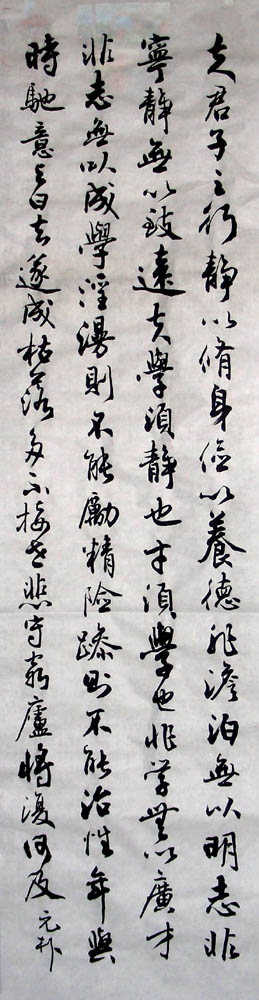 夫君子之行静以脩身儉以養德非澹泊無以明志非
寧静無以致遠夫學須静也才須學也非学無以廣才
非志無以成學淫漫則不能勵精險躁則不能治性年與
時馳意与日去遂成枯落多不接世悲守窮廬將復何及 元